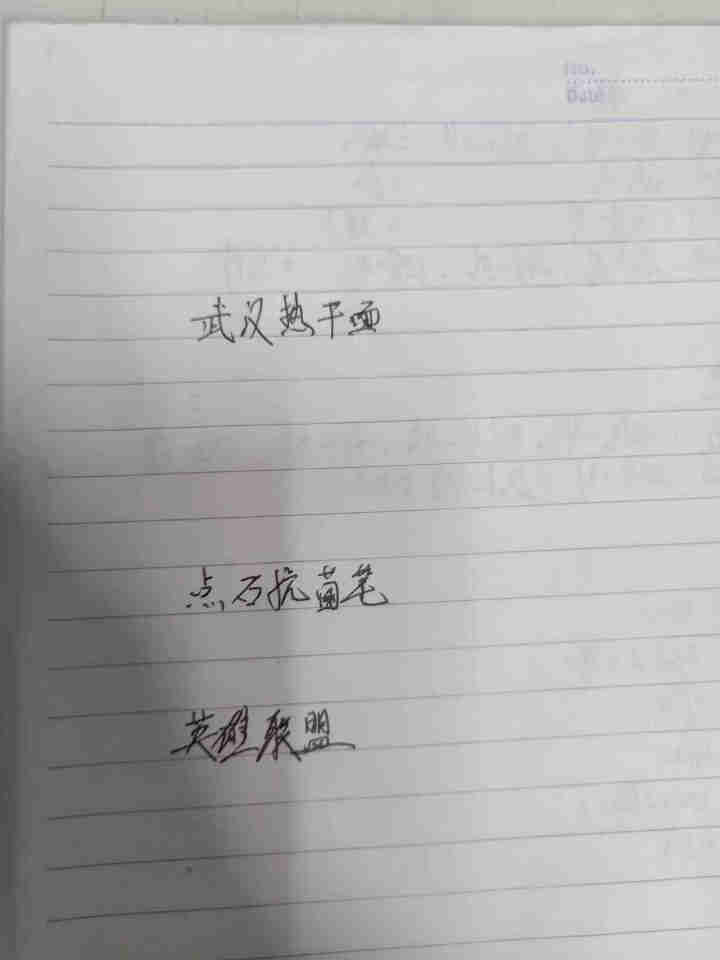 No.
Date
武汉热干面
点石抗菌笔
英雄联盟